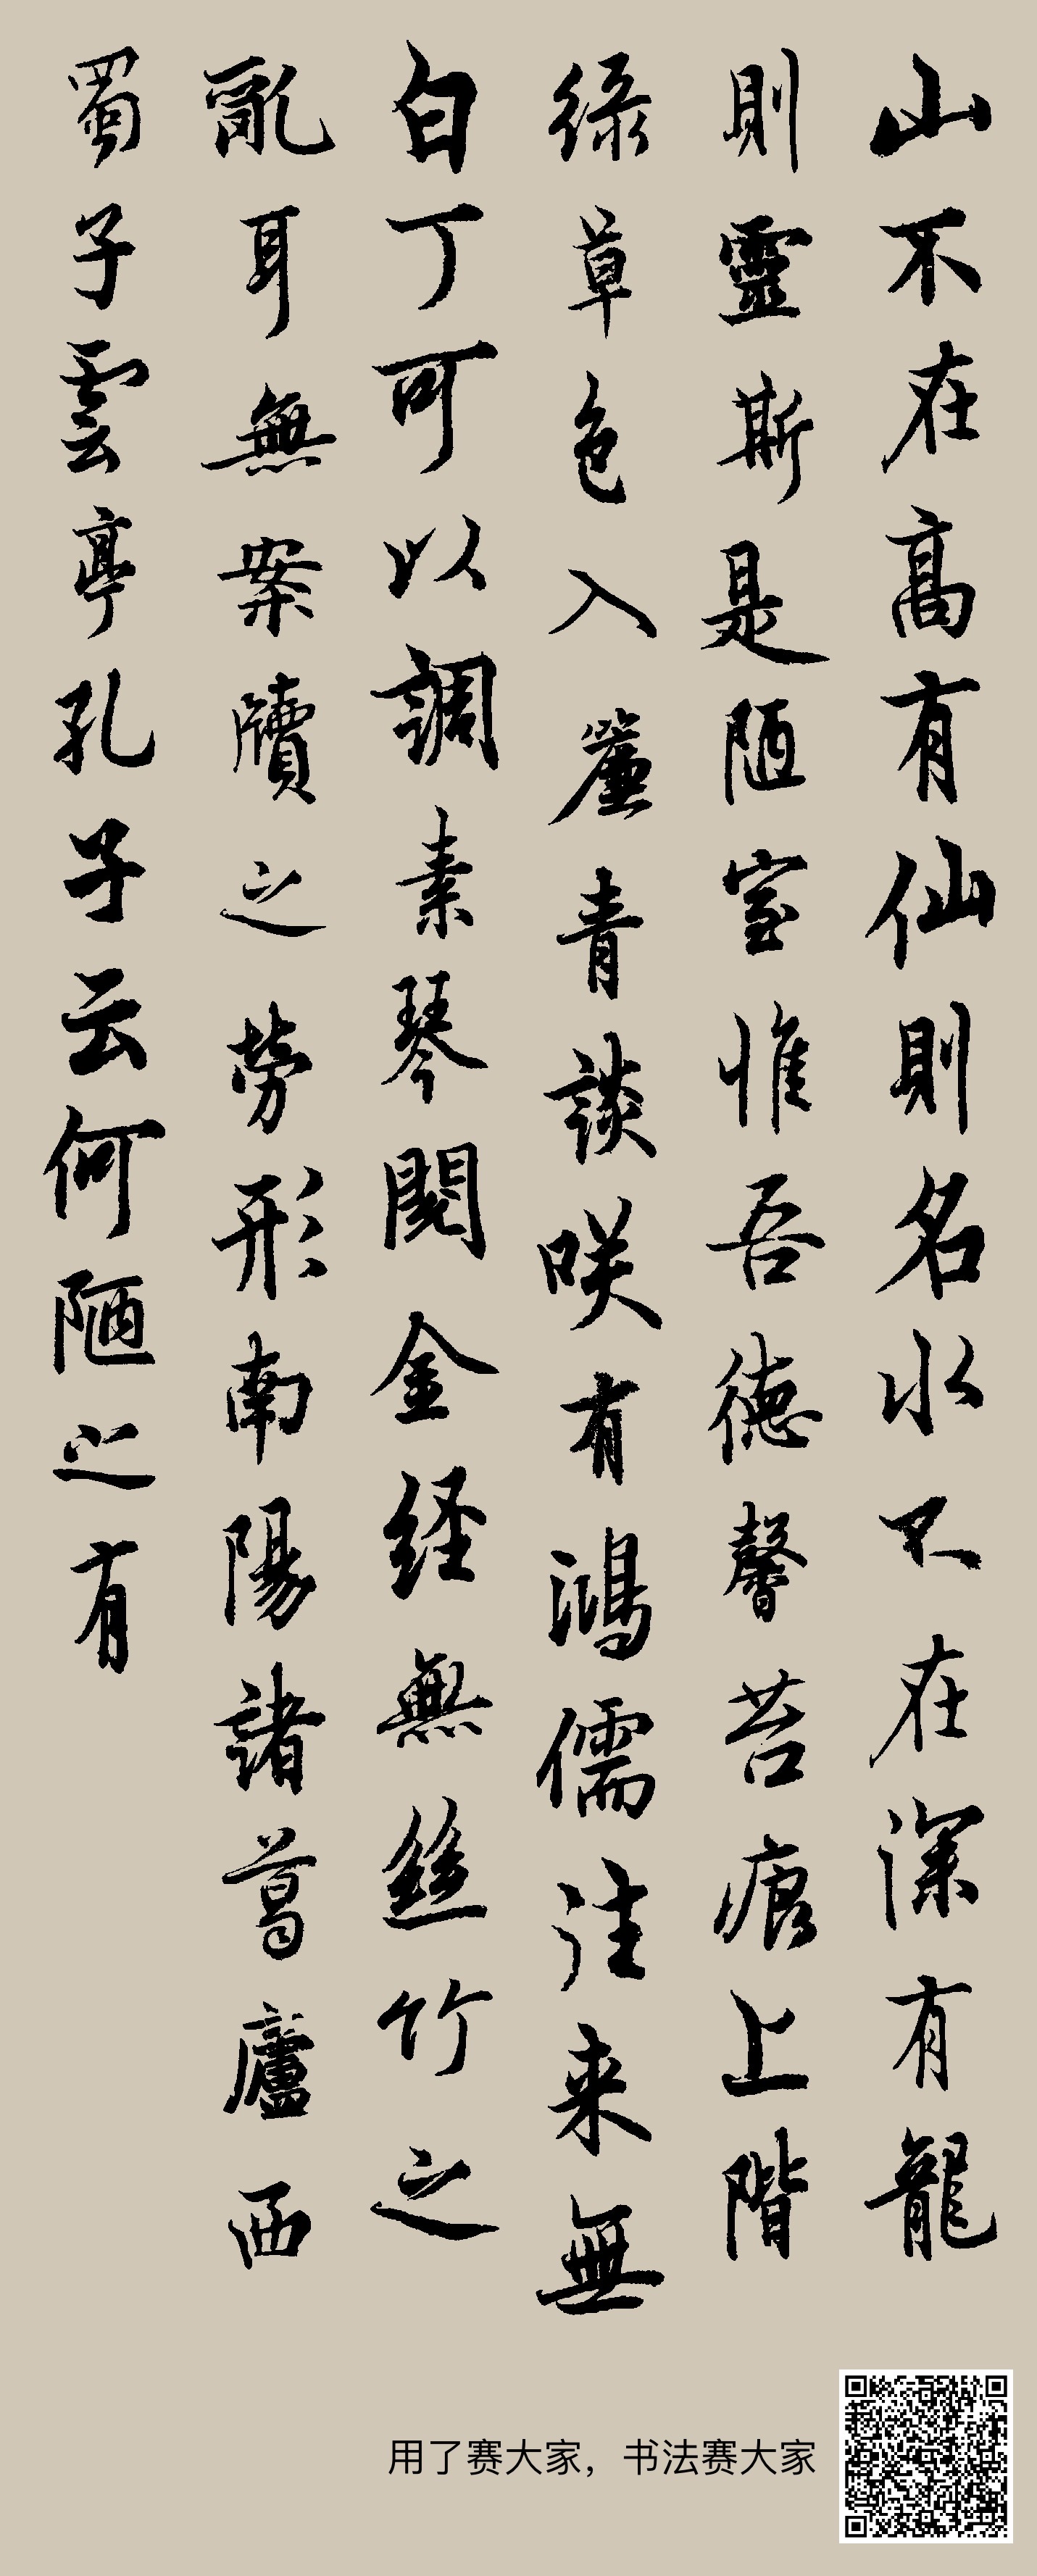 山不在高有仙則名水不在深有龍
則靈斯是陋室惟吾德馨苔痕上階
綠草色入簾青談咲有鴻儒往来無
白丁可以調素琴閱金经無絲竹之
亂耳無案牘之勞形南陽諸葛廬西
蜀子雲亭孔子云何陋之有
用了赛大家，书法赛大家